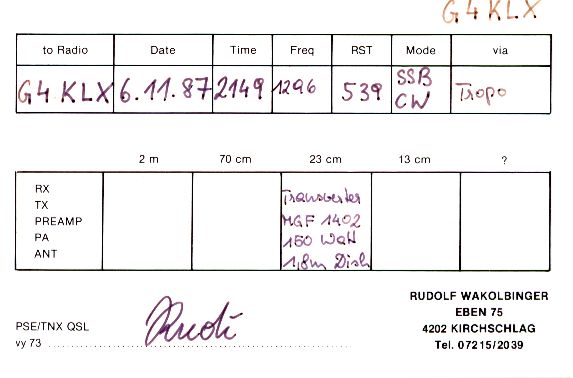 G4KLX
to Radio Date Time Freq RST Mode via
G4KLX 6.11.87 2149 1296 539 SSB CW Tropo
2 m 70 cm 23 cm 13 cm ?
RX Transverter
TX
PREAMP MGF 1402
PA 150 Watt
ANT 1,8m Dish
PSE/TNX QSL Rudi
vy 73
RUDOLF WAKOLBINGER
EBEN 75
4202 KIRCHSCHLAG
Tel. 07215/2039